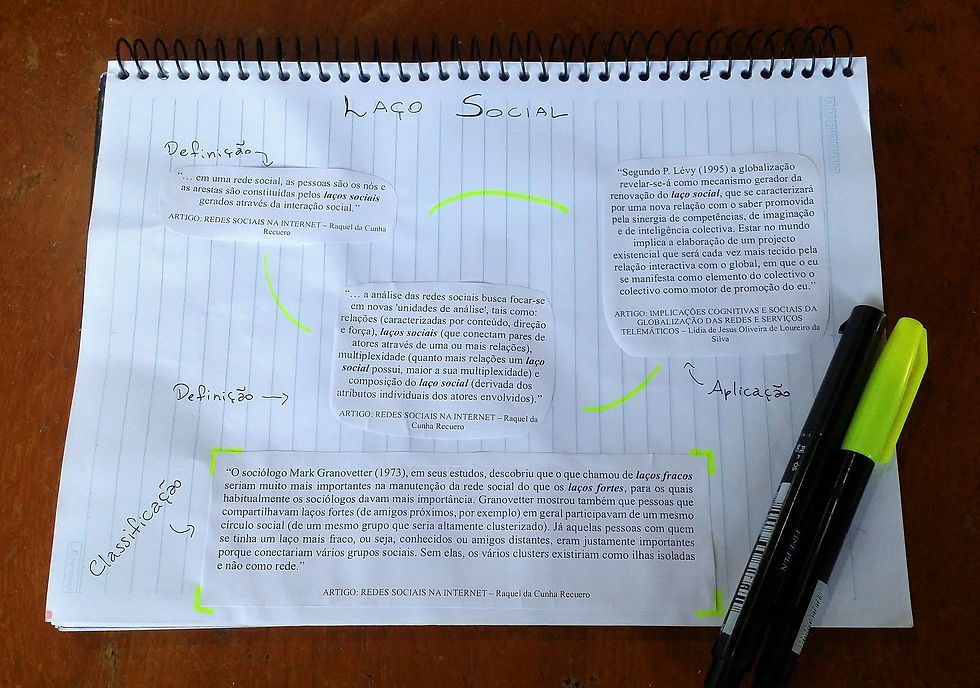 LAÇO SOCIAL
Definição
“... em uma rede social, as pessoas são os nós e
as arestas são constituídas pelos laços sociais
gerados através da interação social.”
ARTIGO: REDES SOCIAIS NA INTERNET – Raquel da Cunha
Recuero
“Segundo P. Lévy (1995) a globalização
revelar-se-á como mecanismo gerador da
renovação do laço social, que se caracterizará
por uma nova relação com o saber promovida
pela sinergia de competências, de imaginação
e de inteligência colectiva. Estar no mundo
implica a elaboração de um projecto
existencial que será cada vez mais tecido pela
relação interactiva com o global, em que o eu
se manifesta como elemento do colectivo o
colectivo como motor de promoção do eu.”
ARTIGO: IMPLICAÇÕES COGNITIVAS E SOCIAIS DA
GLOBALIZAÇÃO DAS REDES E SERVIÇOS
TELEMÁTICOS – Lídia de Jesus Oliveira de Loureiro da
Silva
Aplicação
“... a análise das redes sociais busca focar-se
em novas 'unidades de análise', tais como:
relações (caracterizadas por conteúdo, direção
e força), laços sociais (que conectam pares de
atores através de uma ou mais relações),
multiplexidade (quanto mais relações um laço
social possui, maior a sua multiplexidade) e
composição do laço social (derivada dos
atributos individuais dos atores envolvidos).”
ARTIGO: REDES SOCIAIS NA INTERNET – Raquel da
Cunha Recuero
Definição
Classificação
“O sociólogo Mark Granovetter (1973), em seus estudos, descobriu que o que chamou de laços fracos
seriam muito mais importantes na manutenção da rede social do que os laços fortes, para os quais
habitualmente os sociólogos davam mais importância. Granovetter mostrou também que pessoas que
compartilhavam laços fortes (de amigos próximos, por exemplo) em geral participavam de um mesmo
círculo social (de um mesmo grupo que seria altamente clusterizado). Já aquelas pessoas com quem
se tinha um laço mais fraco, ou seja, conhecidos ou amigos distantes, eram justamente importantes
porque conectariam vários grupos sociais. Sem elas, os vários clusters existiriam como ilhas isoladas
e não como rede.”
ARTIGO: REDES SOCIAIS NA INTERNET – Raquel da Cunha Recuero
FINE PEN